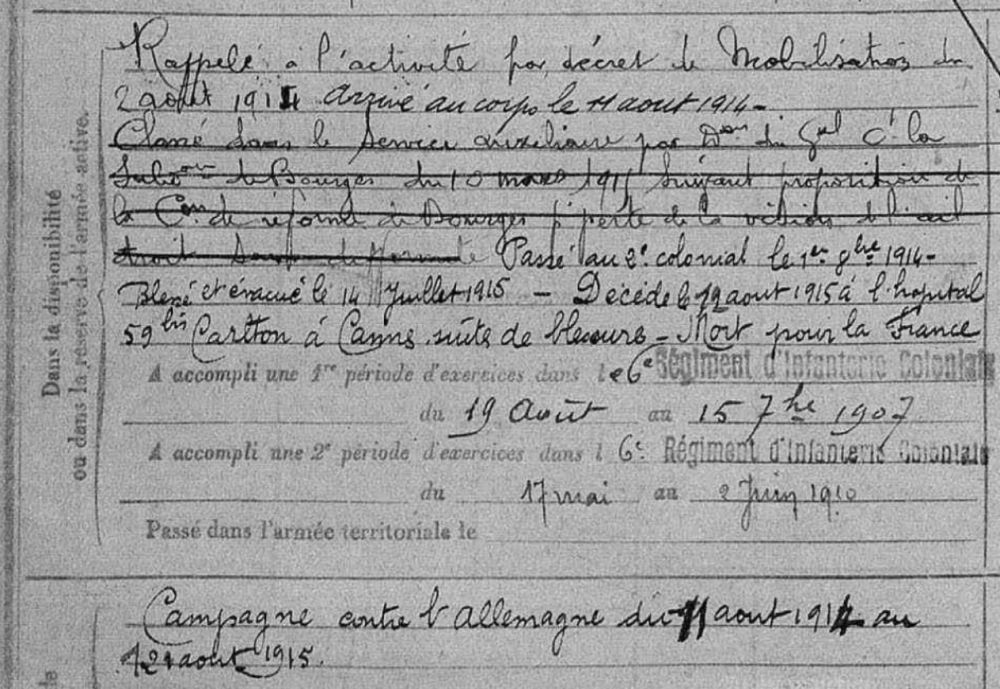 Dans la disponibilité
ou dans la réserve de l'armée active.
Rappelé à l'activité par décret de Mobilisation du
2 août 1914 Arrivé au corps le 11 aout 1914 -
Classé dans le Service auxiliaire par Don du Gal Ct la
Subon de Bourges du 10 mars 1915 suivant proposition de
la Con de réforme de Bourges p. perte de la vision de l'œil
droit Passé au 2e colonial le 1er 8bre 1914 -
Blessé et évacué le 14 Juillet 1915 - Décédé le 12 aout 1915 à l'hopital
59 bis Carlton à Canns suite de blessures - Mort pour la France
A accompli une 1re période d'exercices dans le 6e Régiment d'Infanterie Coloniale
du 19 Août au 15 7bre 1907
A accompli une 2e période d'exercices dans l 6e Régiment d'Infanterie Coloniale
du 17 mai au 2 Juin 1910
Passé dans l'armée territoriale le
Campagne contre l'Allemagne du 11 aout 1914 au
12 aout 1915.